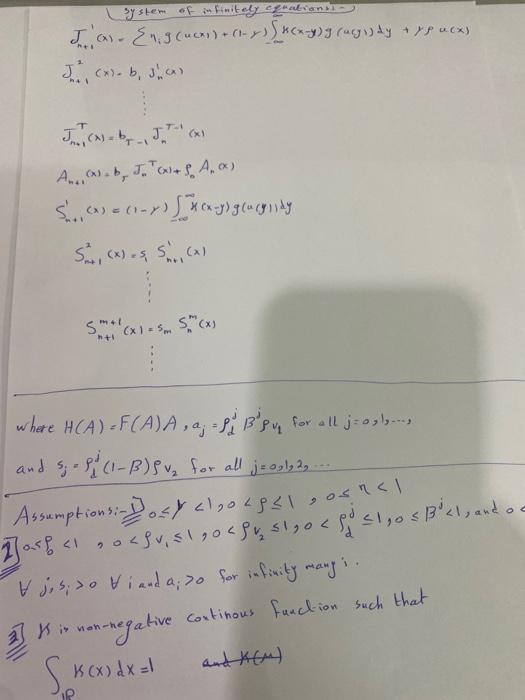 system of infinitely equations:-
J¹ₙ₊₁(x) = {η, g(u(x)) + (1-γ) ∫_{-∞}^{∞} K(x-y) g(u(y)) dy + γρ u(x)
J²ₙ₊₁(x) = b₁ J¹ₙ(x)
⋮
Jᵀₙ₊₁(x) = b_{T-1} Jₙ^{T-1}(x)
Aₙ₊₁(x) = b_T Jₙᵀ(x) + ρ₀ Aₙ(x)
S¹ₙ₊₁(x) = (1-γ) ∫_{-∞}^{∞} K(x-y) g(u(y)) dy
S²ₙ₊₁(x) = s₁ S¹ₙ₊₁(x)
⋮
S^{m+1}_{n+1}(x) = s_m S^m_n(x)
⋮
where H(A) = F(A)A, a_j = ρ_d^j β^j ρ_{v₁} for all j=0,1,...,
and s_j = ρ_d^j (1-β) ρ_{v₂} for all j=0,1,2,...
Assumptions:- 1] 0≤γ<1, 0<ρ≤1, 0≤η<1
2] 0≤ρ₀<1, 0<ρ_{v₁}≤1, 0<ρ_{v₂}≤1, 0<ρ_d^j≤1, 0≤β^j<1, and 0<
∀ j, sᵢ>0 ∀ i and aᵢ>0 for infinity many i.
3] K is non-negative continous function such that
∫_{ℝ} K(x) dx = 1